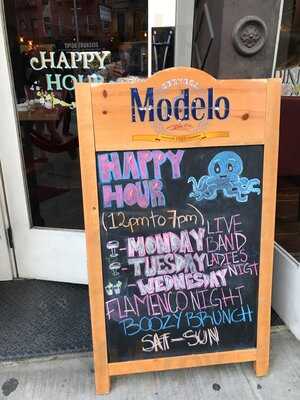 HAPPY
HOUR
CERVEZA
Modelo
HAPPY
HOUR
(12pm TO 7pm)
MONDAY LIVE BAND
TUESDAY LADIES NIGT
WEDNESDAY
FLAMENCO NIGHT
BOOZY BRUNCH
SAT-SUN